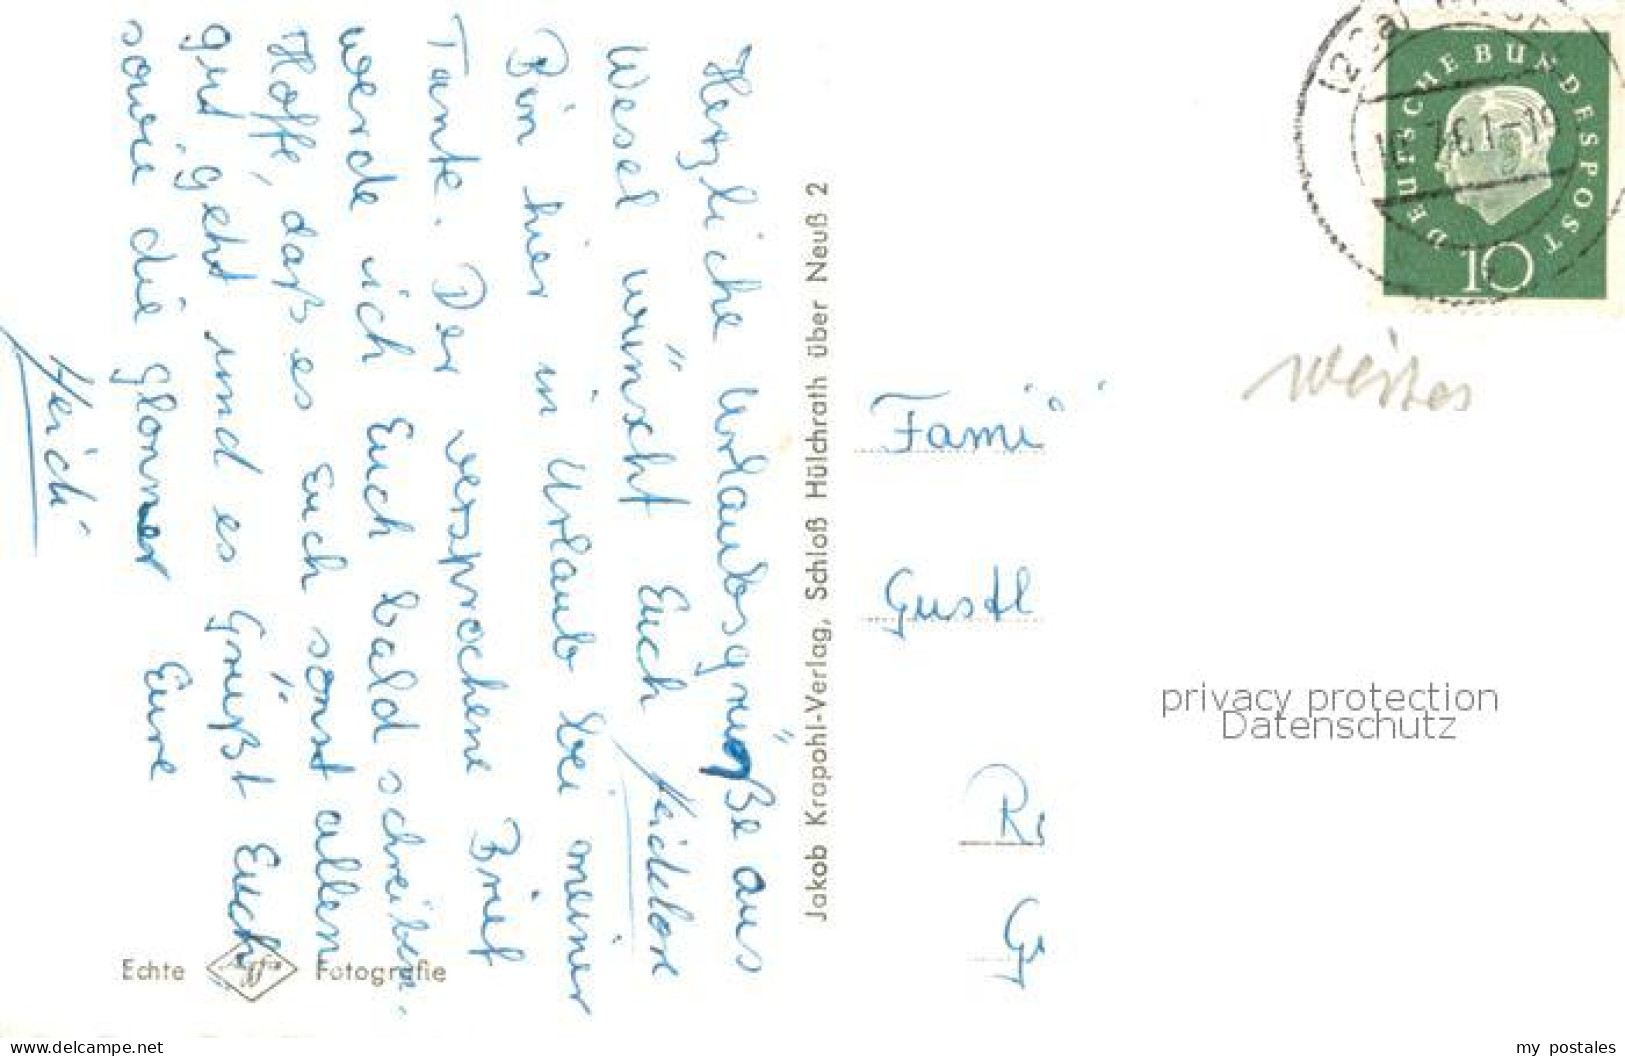 Herzliche Urlaubsgrüße aus
Wesel wünscht Euch Heidelore
Bin hier in Urlaub bei meiner
Tante. Der versprochene Brief
werde ich Euch bald schreiben.
Hoffe, daß es Euch sonst allen
gut geht und es Grüßt Euch
sowie die Glonner Eure
Heidi
Echte Agfa Fotografie
Jakob Krapohl-Verlag, Schloß Hülchrath über Neuß 2
DEUTSCHE BUNDESPOST
10
(22a)
7.61-1
Fami
Gustl
Ri
privacy protection
Datenschutz
www.delcampe.net
my postales